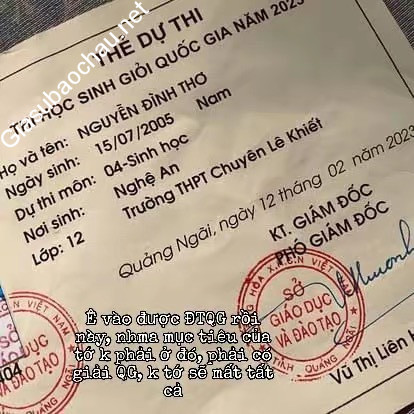 THẺ DỰ THI
THI HỌC SINH GIỎI QUỐC GIA NĂM 2023
Họ và tên: NGUYỄN ĐÌNH THƠ
Ngày sinh: 15/07/2005 Nam
Dự thi môn: 04-Sinh học
Nơi sinh: Nghệ An
Lớp: 12 Trường THPT Chuyên Lê Khiết
Quảng Ngãi, ngày 12 tháng 02 năm 2023
KT. GIÁM ĐỐC
PHÓ GIÁM ĐỐC
SỞ
GIÁO DỤC
VÀ ĐÀO TẠO
Vũ Thị Liên H
GIÁO DỤC
VÀ ĐÀO TẠO
404
Ê vào được ĐTQG rồi
này, nhma mục tiêu của
tớ k phải ở đó, phải có
giải QG, k tớ sẽ mất tất
cả
Giasubaochau.net